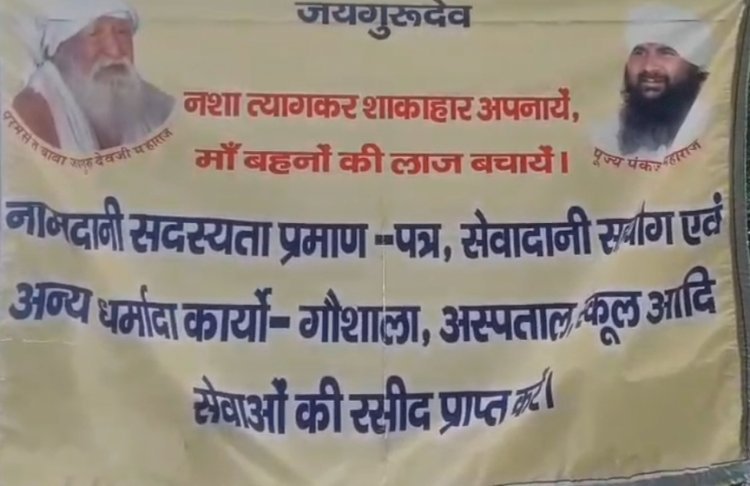 जयगुरूदेव
नशा त्यागकर शाकाहार अपनायें,
माँ बहनों की लाज बचायें।
परमसंत बाबा जयगुरुदेवजी महाराज
पूज्य पंकज महाराज
नामदानी सदस्यता प्रमाण --पत्र, सेवादानी सहयोग एवं
अन्य धर्मादा कार्यो- गौशाला, अस्पताल, स्कूल आदि
सेवाओं की रसीद प्राप्त करें।